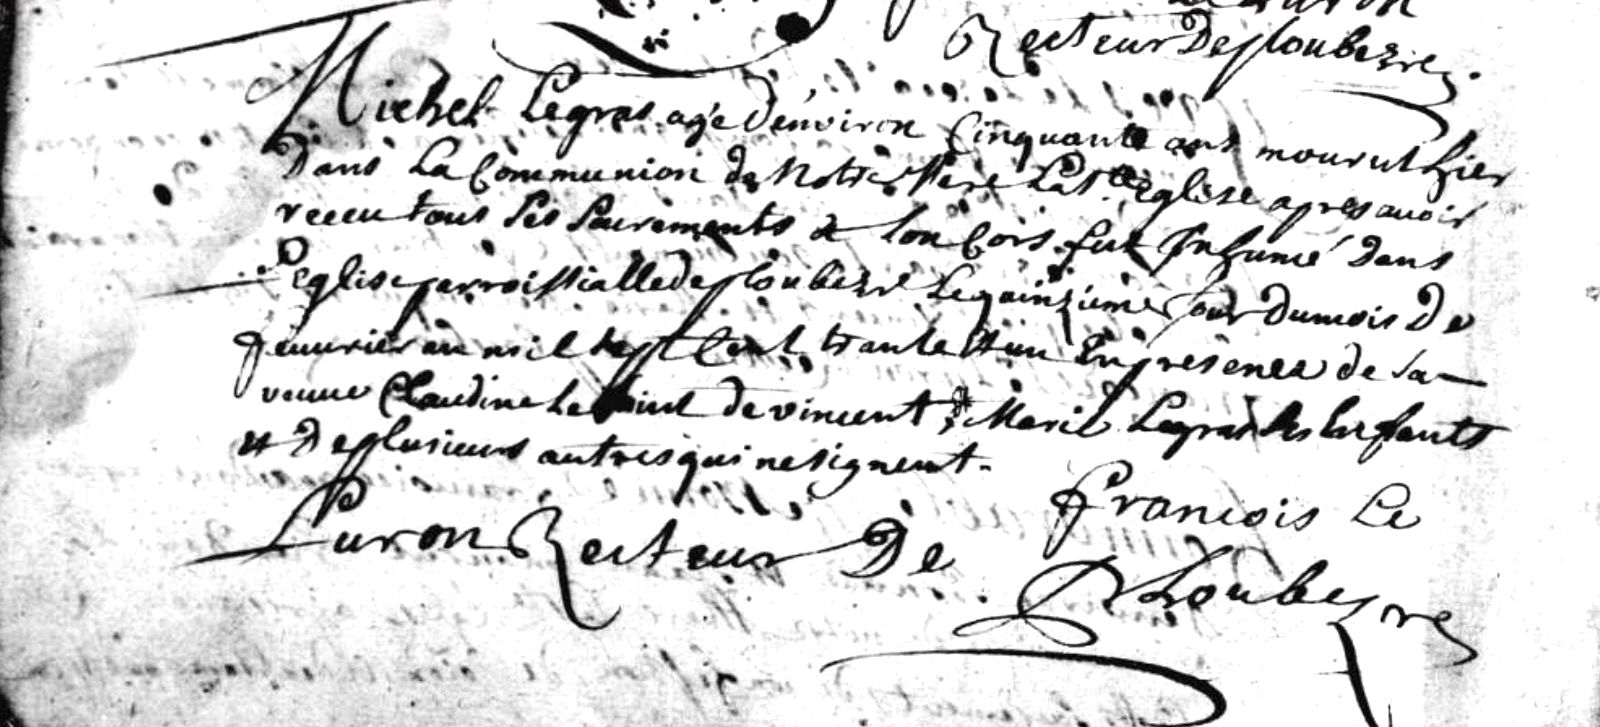 Recteur De ploubezre
Michel Legras agé d'environ Cinquante ans mourut hier
Dans La Communion de Notre Mere La Ste Eglise apres avoir
receu tous Les Sacrements & Son Cors fut Inhumé dans
l'Eglise parroissialle de ploubezre Le quinzieme Jour du mois De
feuurier an mil sept Cent trante et un En presence de Sa
veuue Claudine Le de vincent & Marie Legras Ses Enfants
et De plusieurs autres qui ne signent.
francois Le
Luron Recteur De
Ploubezre